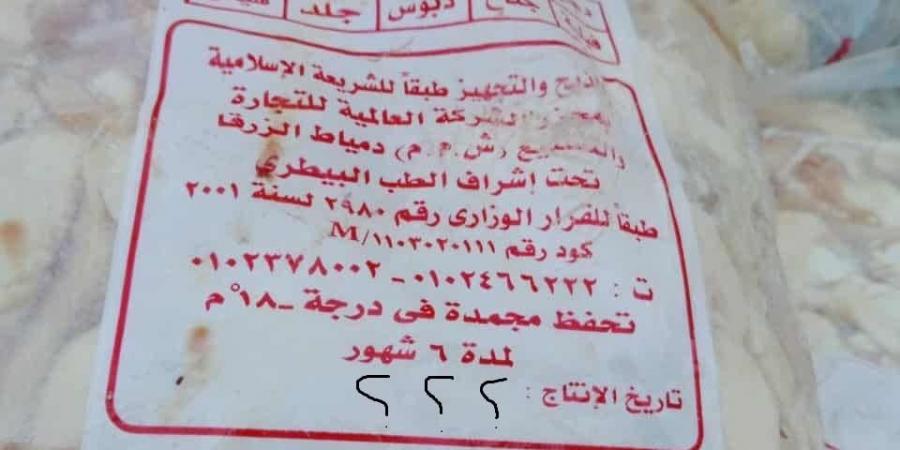 جلد دبوس
الذبح والتجهيز طبقاً للشريعة الإسلامية
بمجزر الشركة العالمية للتجارة
والتصنيع (ش.م.م) دمياط الزرقا
تحت إشراف الطب البيطرى
طبقاً للقرار الوزارى رقم ٢٩٨٠ لسنة ٢٠٠١
كود رقم M/١١٠٣٠٢٠١١١
ت : ٠١٠٢٤٦٦٢٢٢ - ٠١٠٢٣٧٨٠٠٢
تحفظ مجمدة فى درجة -١٨°م
لمدة ٦ شهور
تاريخ الإنتاج : ؟ ؟ ؟